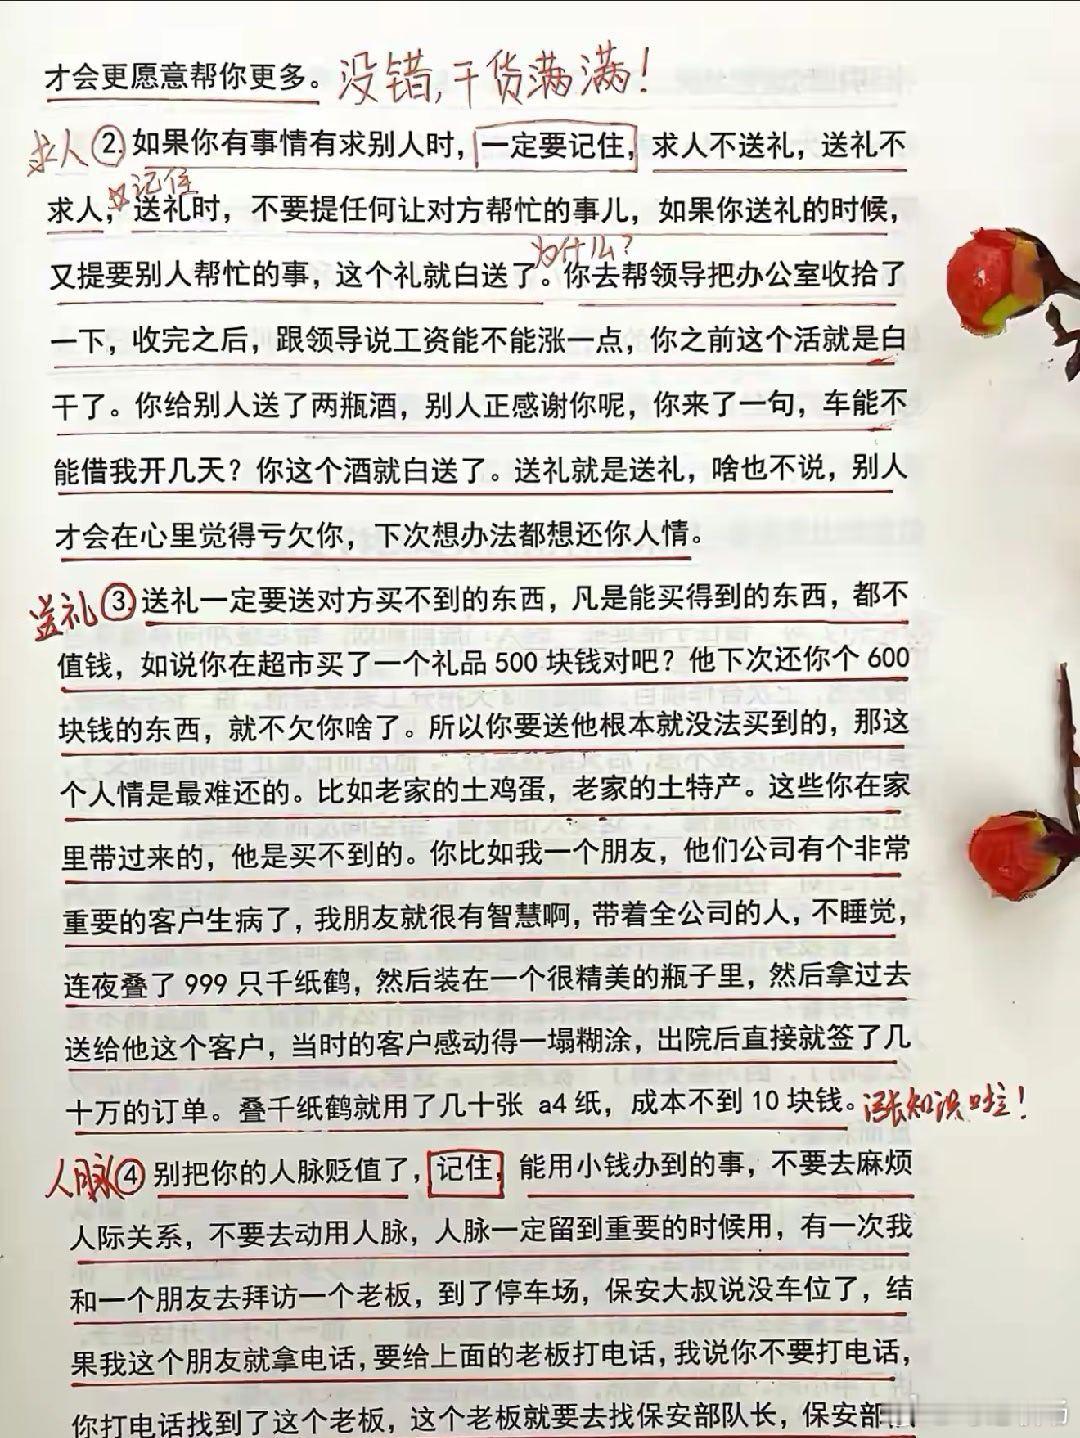 才会更愿意帮你更多。没错,干货满满!
求人②.如果你有事情有求别人时，一定要记住，求人不送礼，送礼不
记住
求人，送礼时，不要提任何让对方帮忙的事儿，如果你送礼的时候，
为什么?
又提要别人帮忙的事，这个礼就白送了。你去帮领导把办公室收拾了
一下，收完之后，跟领导说工资能不能涨一点，你之前这个活就是白
干了。你给别人送了两瓶酒，别人正感谢你呢，你来了一句，车能不
能借我开几天？你这个酒就白送了。送礼就是送礼，啥也不说，别人
才会在心里觉得亏欠你，下次想办法都想还你人情。
送礼③.送礼一定要送对方买不到的东西，凡是能买得到的东西，都不
值钱，如说你在超市买了一个礼品500块钱对吧？他下次还你个600
块钱的东西，就不欠你啥了。所以你要送他根本就没法买到的，那这
个人情是最难还的。比如老家的土鸡蛋，老家的土特产。这些你在家
里带过来的，他是买不到的。你比如我一个朋友，他们公司有个非常
重要的客户生病了，我朋友就很有智慧啊，带着全公司的人，不睡觉，
连夜叠了999只千纸鹤，然后装在一个很精美的瓶子里，然后拿过去
送给他这个客户，当时的客户感动得一塌糊涂，出院后直接就签了几
十万的订单。叠千纸鹤就用了几十张 a4纸，成本不到10块钱。涨知识啦!
人脉④别把你的人脉贬值了，记住，能用小钱办到的事，不要去麻烦
人际关系，不要去动用人脉，人脉一定留到重要的时候用，有一次我
和一个朋友去拜访一个老板，到了停车场，保安大叔说没车位了，结
果我这个朋友就拿电话，要给上面的老板打电话，我说你不要打电话，
你打电话找到了这个老板，这个老板就要去找保安部队长，保安部